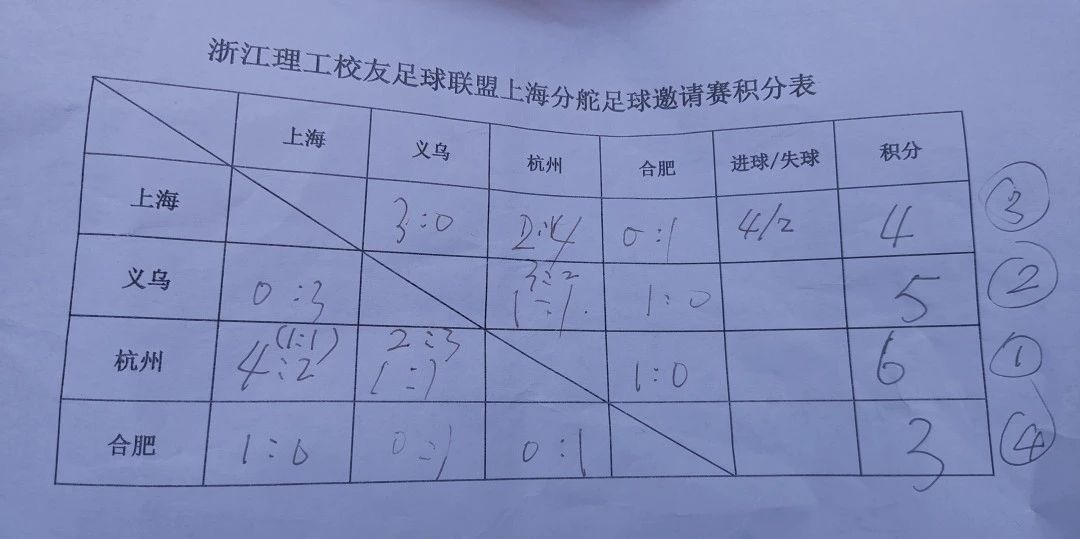 浙江理工校友足球联盟上海分舵足球邀请赛积分表
上海 义乌 杭州 合肥 进球/失球 积分
上海 3:0 2:4 0:1 4/2 4 ③
3:2
义乌 0:3 1:1 1:0 5 ②
(1:1) 2:3
杭州 4:2 1:1 1:0 6 ①
合肥 1:0 0:1 0:1 3 ④